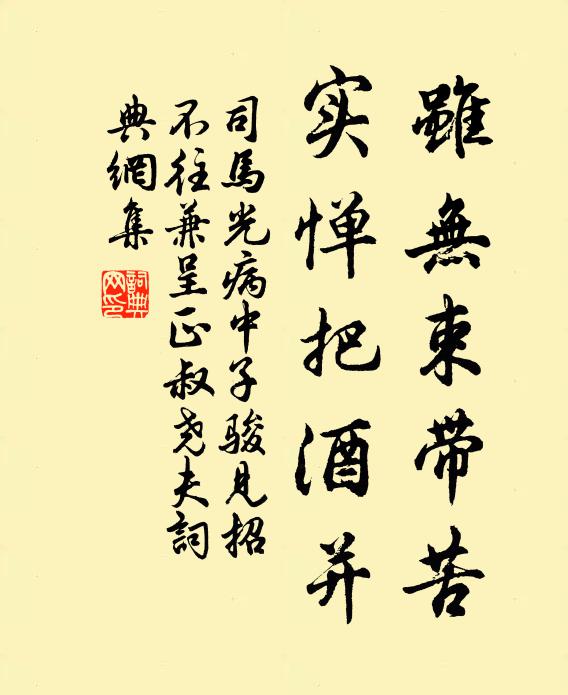 雖無束帶苦
实惮把酒并
司馬光病中子駿見招
不往兼呈正叔尧夫詞
典網集
詞典网印